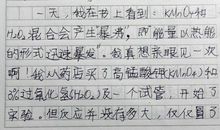 一天，我在书上看到：KMnO₄和
H₂O₂混合会产生暴沸，即能量以热能
的形式迅速暴发”。我真想亲眼见一次
啊！我从药店买了高锰酸钾(KMnO₄)和
3%过氧化氢(H₂O₂)及一个试管，开始了
实验。但反应并没有多大，仅仅冒